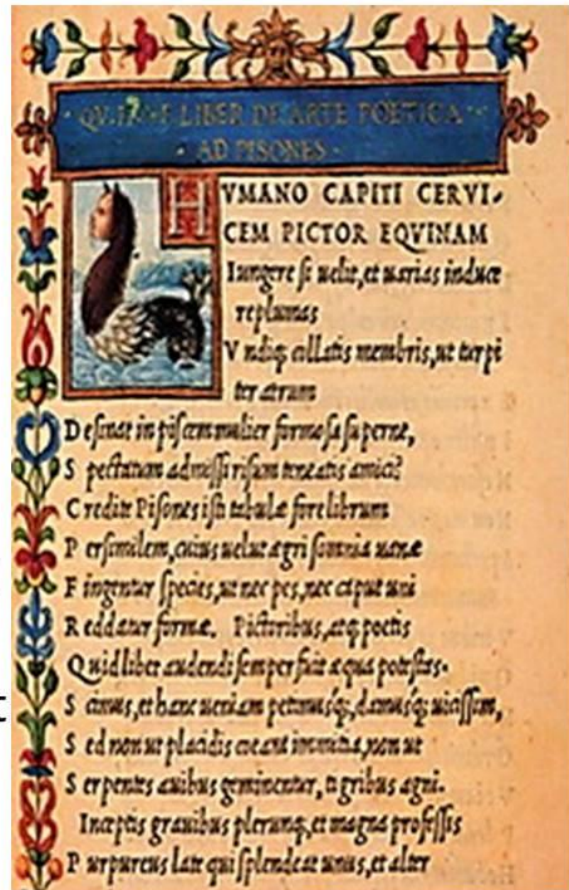 LIBER DE ARTE POETICA
AD PISONES
HVMANO CAPITI CERVI-
CEM PICTOR EQVINAM
Iungere si uelit, et uarias induce
re plumas
V ndiq; collatis membris, ut turpi
ter atrum
D esinat in piscem mulier formosa superne,
S pectatum admissi risum teneatis amici?
C redite Pisones isti tabulæ fore librum
P ersimilem, cuius uelut ægri somnia uanæ
F ingentur species, ut nec pes, nec caput uni
R eddatur formæ. Pictoribus, atq; poetis
Q uidlibet audendi semper fuit æqua potestas.
S cimus, et hanc ueniam petimusq́;, damusq́; uicissim,
S ed non ut placidis coeant immitia, non ut
S erpentes auibus geminentur, tigribus agni.
Inceptis grauibus plerunq;, et magna professis
P urpureus late qui splendeat unus, et alter
t